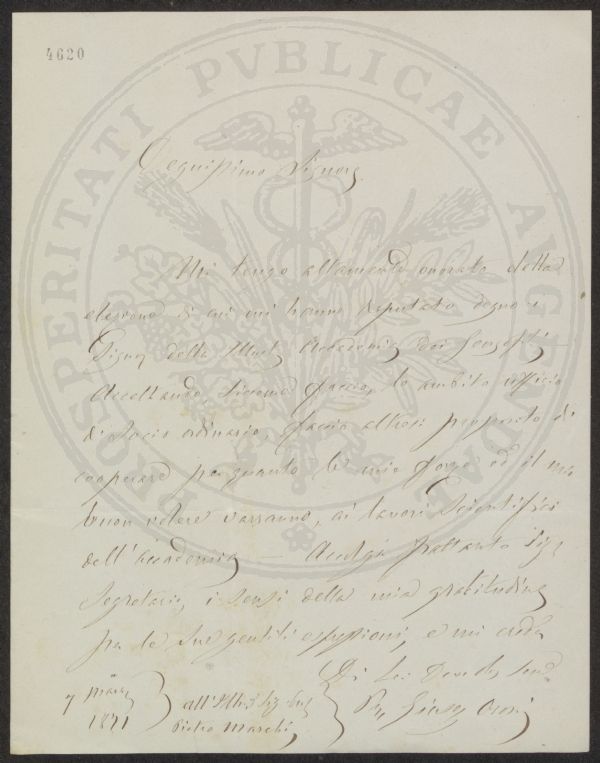 4620
PROSPERITATI PVBLICAE AVGENDAE
Degnissimo Signore
Mi tengo altamente onorato della
elezione di cui mi hanno reputato degno i
Signori della Accademia dei Georgofili —
Accettando, siccome faccio, lo ambito ufficio
di Socio ordinario, faccio altresì proposito di
cooperare per quanto le mie forze ed il mio
buon volere varranno, ai lavori Scientifici
dell'Accademia — Accolga frattanto Sig.
Segretario, i sensi della mia gratitudine
per le Sue gentili espressioni, e mi creda
Di Lei
7 Marzo
1871
all'Illust. Sig.
Pietro Marchi